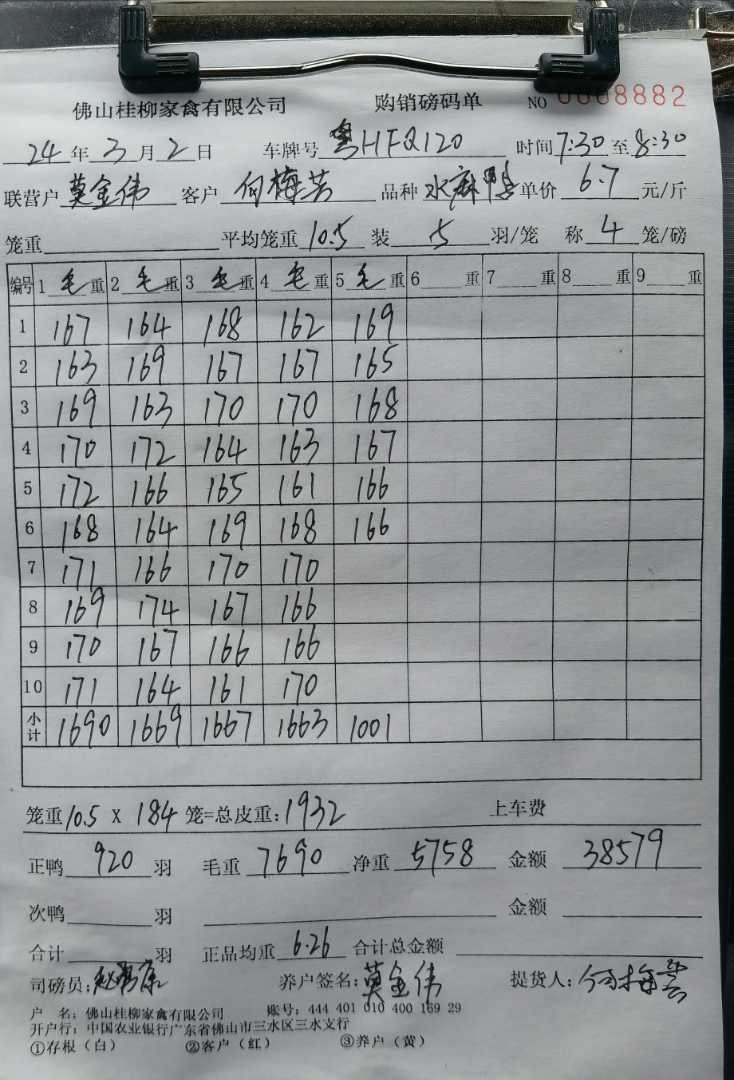 佛山桂柳家禽有限公司 购销磅码单 NO 0008882
24年3月2日 车牌号 粤HFQ120 时间7:30至8:30
联营户 莫金伟 客户 何梅芸 品种 水麻鸭 单价 6.7 元/斤
笼重 平均笼重 10.5 装 5 羽/笼 称 4 笼/磅
编号 1 毛 重 2 毛 重 3 毛 重 4 毛 重 5 毛 重 6 重 7 重 8 重 9 重
1 167 164 168 162 169
2 163 169 167 167 165
3 169 163 170 170 168
4 170 172 164 163 167
5 172 166 165 161 166
6 168 164 169 168 166
7 171 166 170 170
8 169 174 167 166
9 170 167 166 166
10 171 164 161 170
小计 1690 1669 1667 1663 1001
笼重 10.5 X 184 笼=总皮重: 1932 上车费
正鸭 920 羽 毛重 7690 净重 5758 金额 38579
次鸭 羽 金额
合计 羽 正品均重 6.26 合计总金额
司磅员: 养户签名: 莫金伟 提货人: 何梅芸
户 名: 佛山桂柳家禽有限公司 账号: 444 401 010 400 169 29
开户行: 中国农业银行广东省佛山市三水区三水支行
①存根(白) ②客户(红) ③养户(黄)